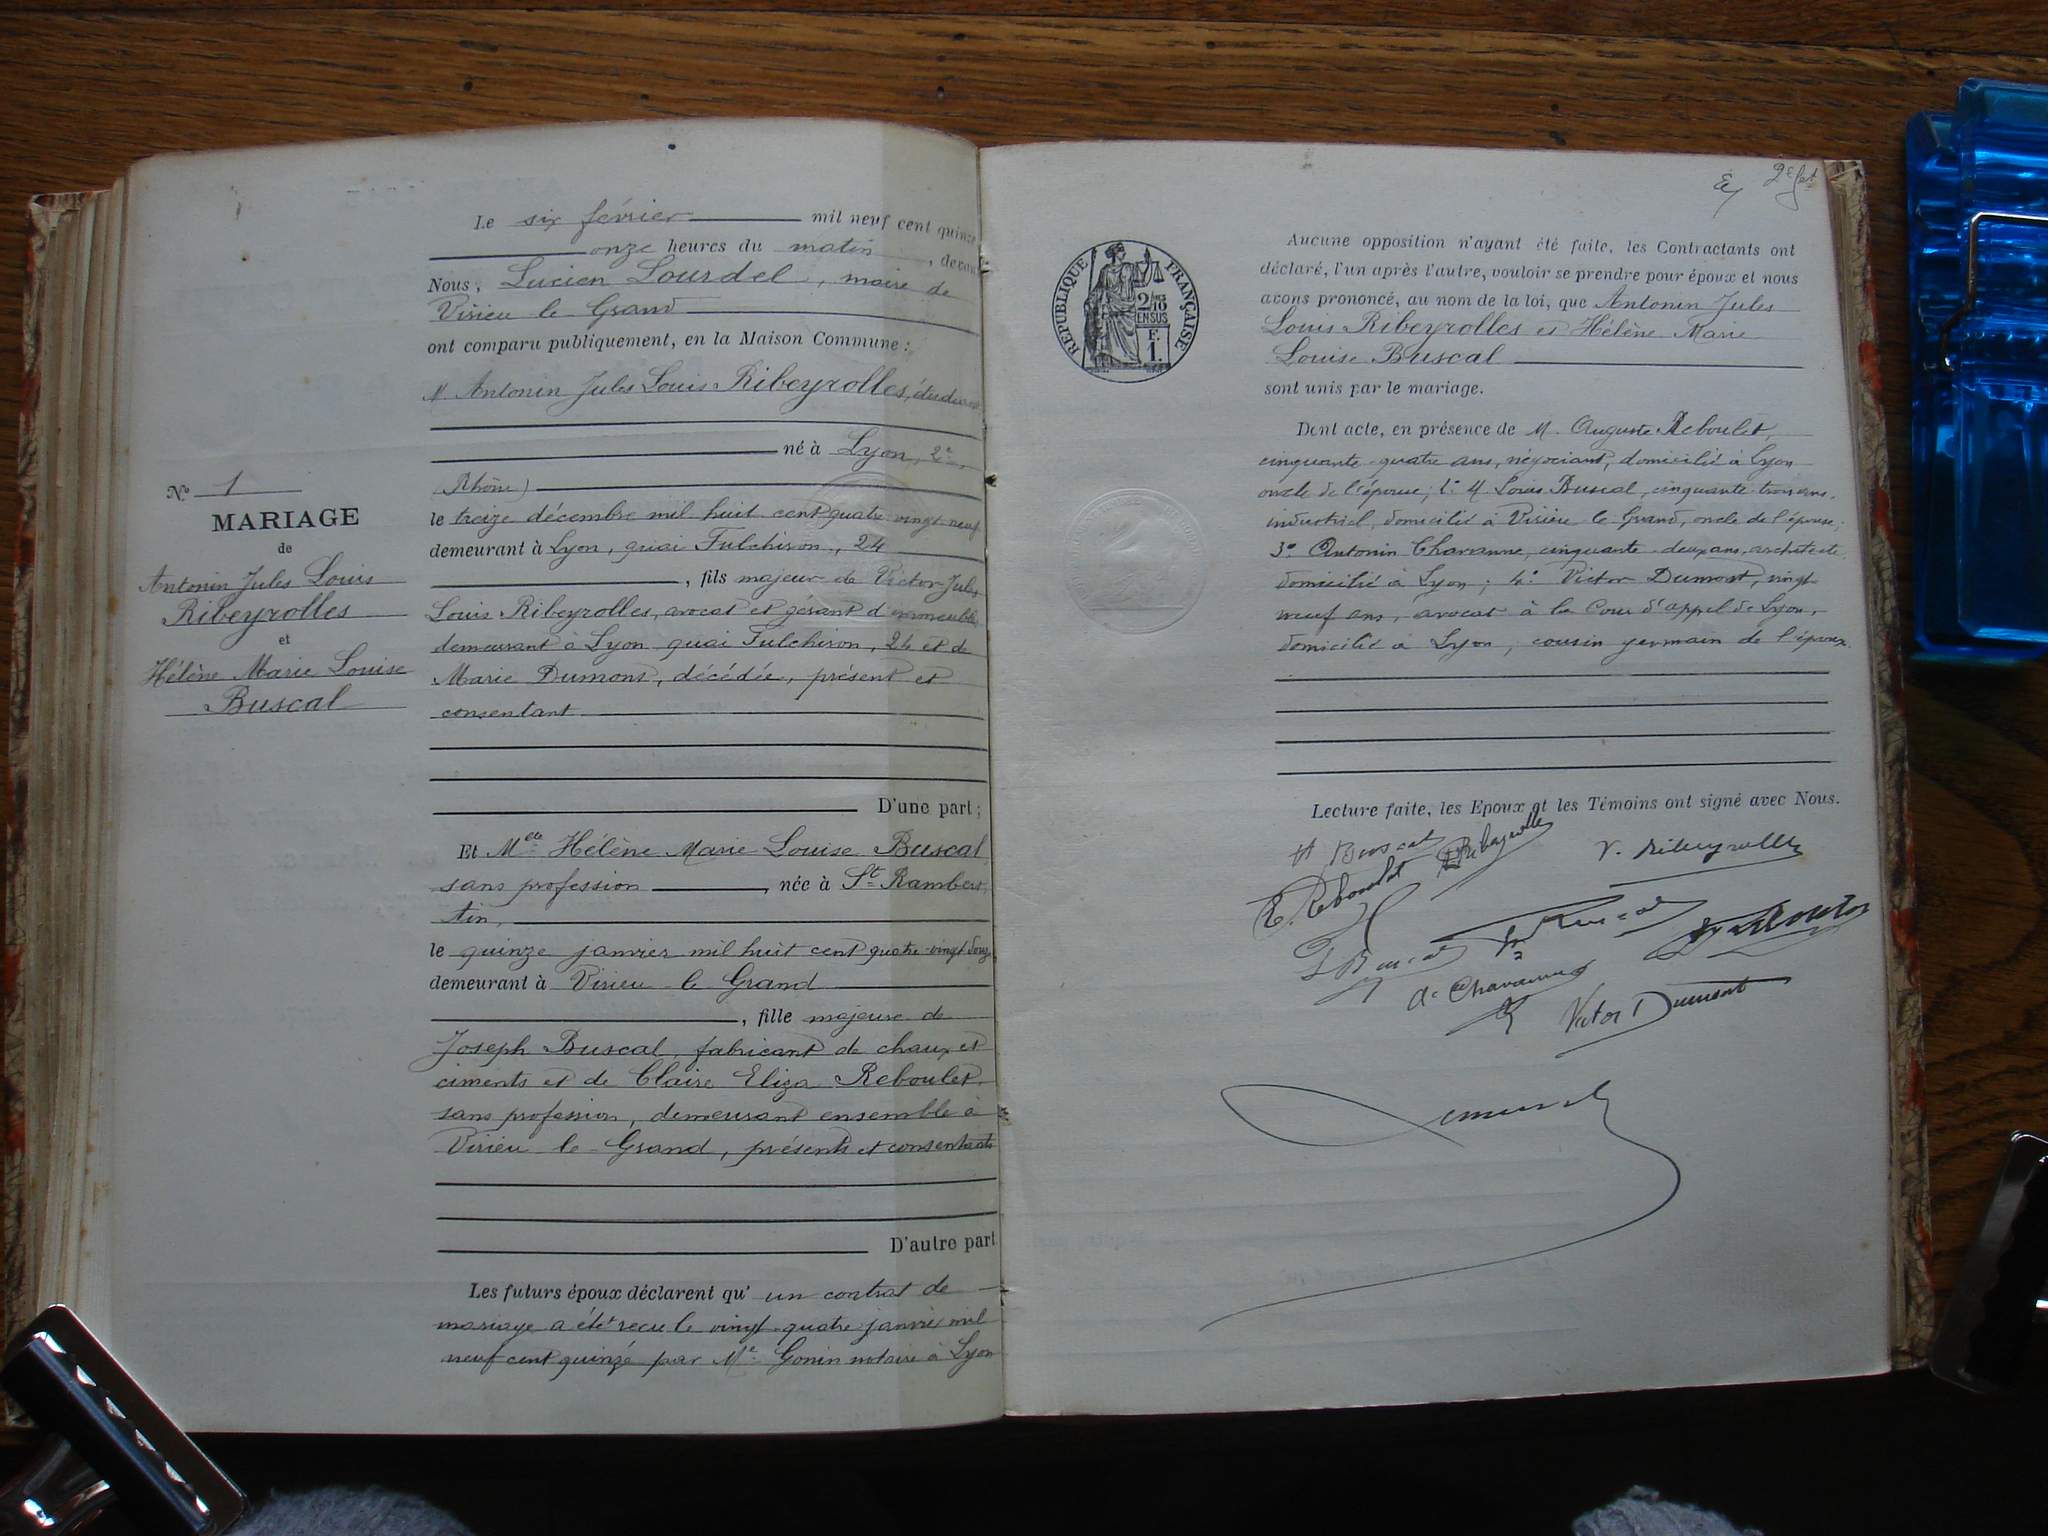 Le six février mil neuf cent quinze
onze heures du matin, devant
Nous, Lucien Lourdel, maire de
Virieu le Grand
ont comparu publiquement, en la Maison Commune :
M Antonin Jules Louis Ribeyrolles,
né à Lyon, 2e,
Rhône)
le treize décembre mil huit cent quatre vingt neuf
demeurant à Lyon, quai Fulchiron, 24
, fils majeur de Victor Jules
Louis Ribeyrolles, avocat et gérant d'immeubles,
demeurant à Lyon quai Fulchiron, 24 et de
Marie Dumont, décédée, présent et
consentant
D'une part ;
Et Melle Hélène Marie Louise Buscal
sans profession, née à St Rambert,
Ain,
le quinze janvier mil huit cent quatre-vingt douze
demeurant à Virieu le Grand
, fille majeure de
Joseph Buscal, fabricant de chaux et
ciments et de Claire Eliza Reboulet
sans profession, demeurant ensemble à
Virieu le Grand, présents et consentants
D'autre part
Les futurs époux déclarent qu'un contrat de
mariage a été recu le vingt quatre janvier mil
neuf cent quinze par Me Gonin notaire à Lyon
No 1
MARIAGE
de
Antonin Jules Louis
Ribeyrolles
et
Hélène Marie Louise
Buscal
2e
RÉPUBLIQUE FRANÇAISE
2/10
EN SUS
F.
1.
Aucune opposition n'ayant été faite, les Contractants ont
déclaré, l'un après l'autre, vouloir se prendre pour époux et nous
avons prononcé, au nom de la loi, que Antonin Jules
Louis Ribeyrolles et Hélène Marie
Louise Buscal
sont unis par le mariage.
Dont acte, en présence de M. Auguste Reboulet,
cinquante-quatre ans, négociant, domicilié à Lyon
oncle de l'épouse; Louis Buscal, cinquante-trois ans,
industriel, domicilié à Virieu le Grand, oncle de l'épouse;
3o Antonin Chavanne, cinquante-deux ans, architecte
domicilié à Lyon; 4o Victor Dumont, vingt
neuf ans, avocat à la Cour d'appel de Lyon,
domicilié à Lyon, cousin germain de l'époux.
Lecture faite, les Epoux et les Témoins ont signé avec Nous.
H Buscal
Ribeyrolles
V. Ribeyrolles
Reboulet
Buscal
L Buscal
A. Chavanne
Victor Dumont